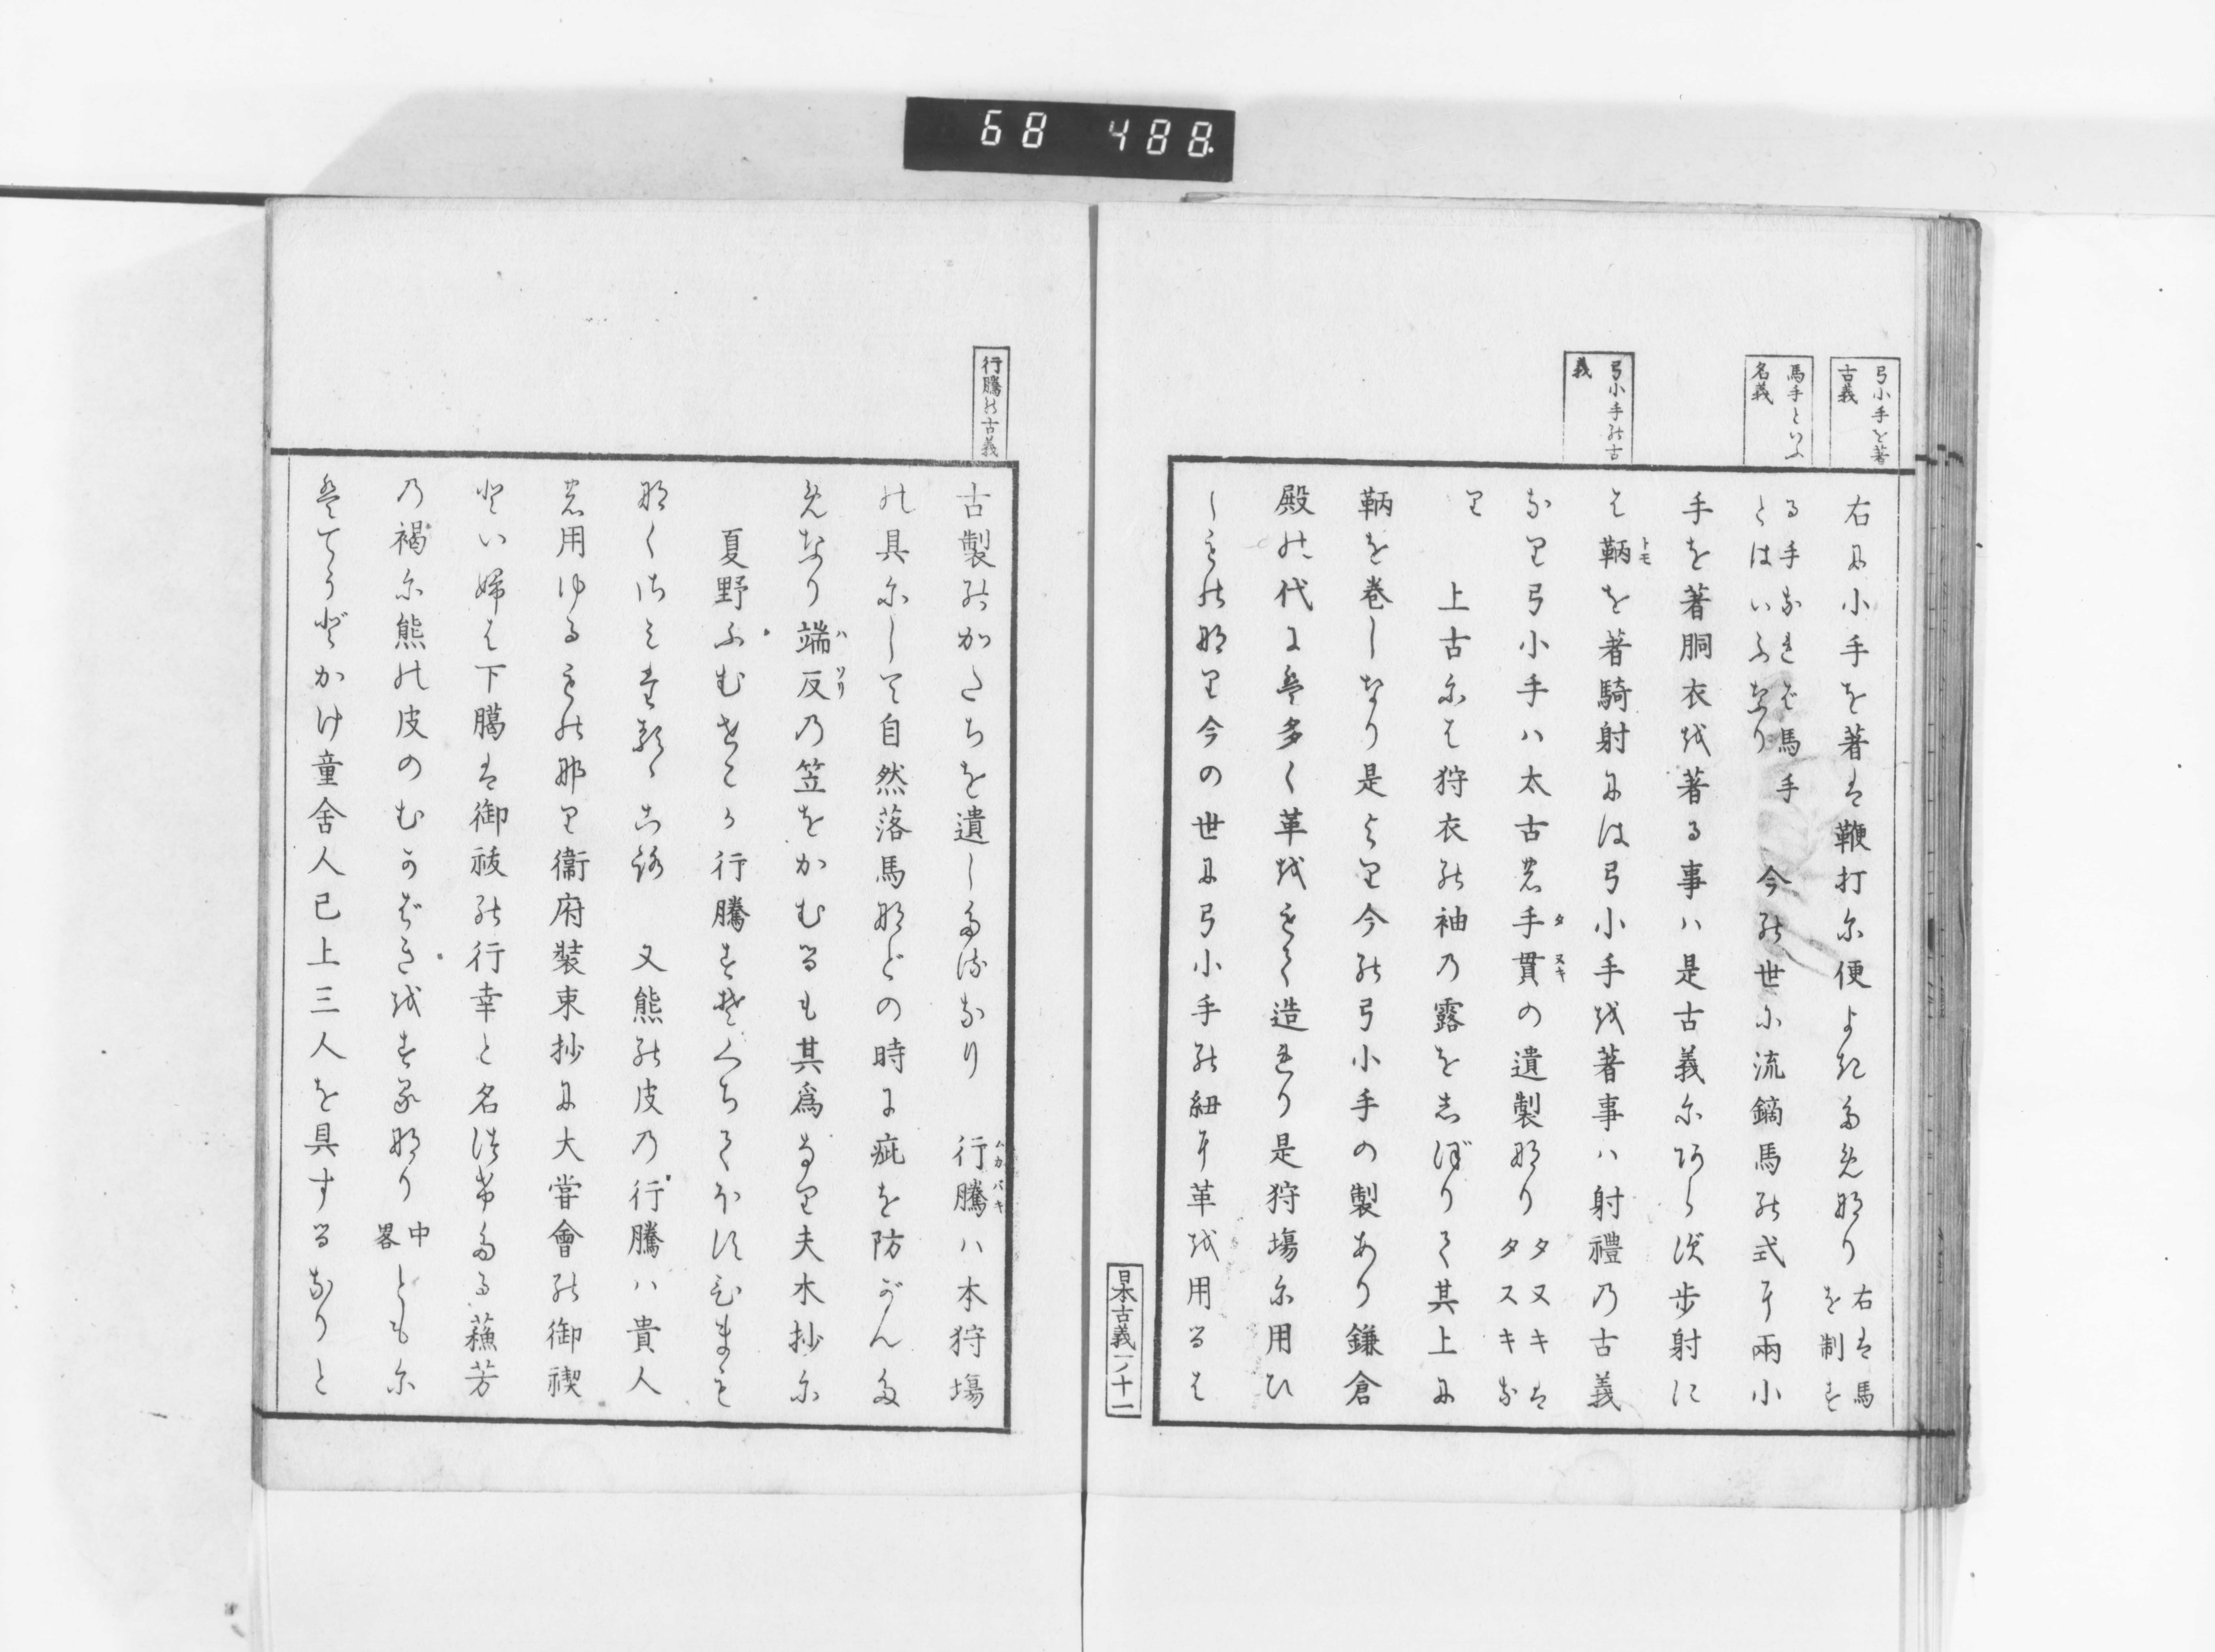 68 488.
弓小手を著
古義
馬手といふ
名義
弓小手の古
義
右に小手を著は鞭打に便よきためなり 右は馬
を制す
る手なれば馬手
とはいふなり
今の世に流鏑馬の式に兩小
手を著胴衣を著る事ハ是古義にあらず歩射に
は鞆を著騎射には弓小手を著事ハ射禮の古義
なり弓小手ハ太古の手貫の遺製なり タヌキは
タスキな
り
上古には狩衣の袖の露をしぼりて其上に
鞆を巻しなり是より今の弓小手の製あり鎌倉
殿の代に至多く革をもて造れり是狩塲に用ひ
しもの那り今の世に弓小手の紐に革を用るは
日本古義一ノ十一
行騰の古義
古製のかたちを遺したるなり 行騰ハ本狩塲
の具にして自然落馬などの時に疵を防がんた
めなり端反の笠をかむるも其爲なり夫木抄に
夏野ふむせこ
行騰
なく
又熊の皮の行騰ハ貴人
の用ゆるものなり衞府裝束抄に大甞會の御禊
といへは下臈は御祓の行幸と名つけたる蘓芳
の褐に熊の皮のむかばきをするなり 中
畧 ともに
至てうどかけ童舍人已上三人を具するなりと